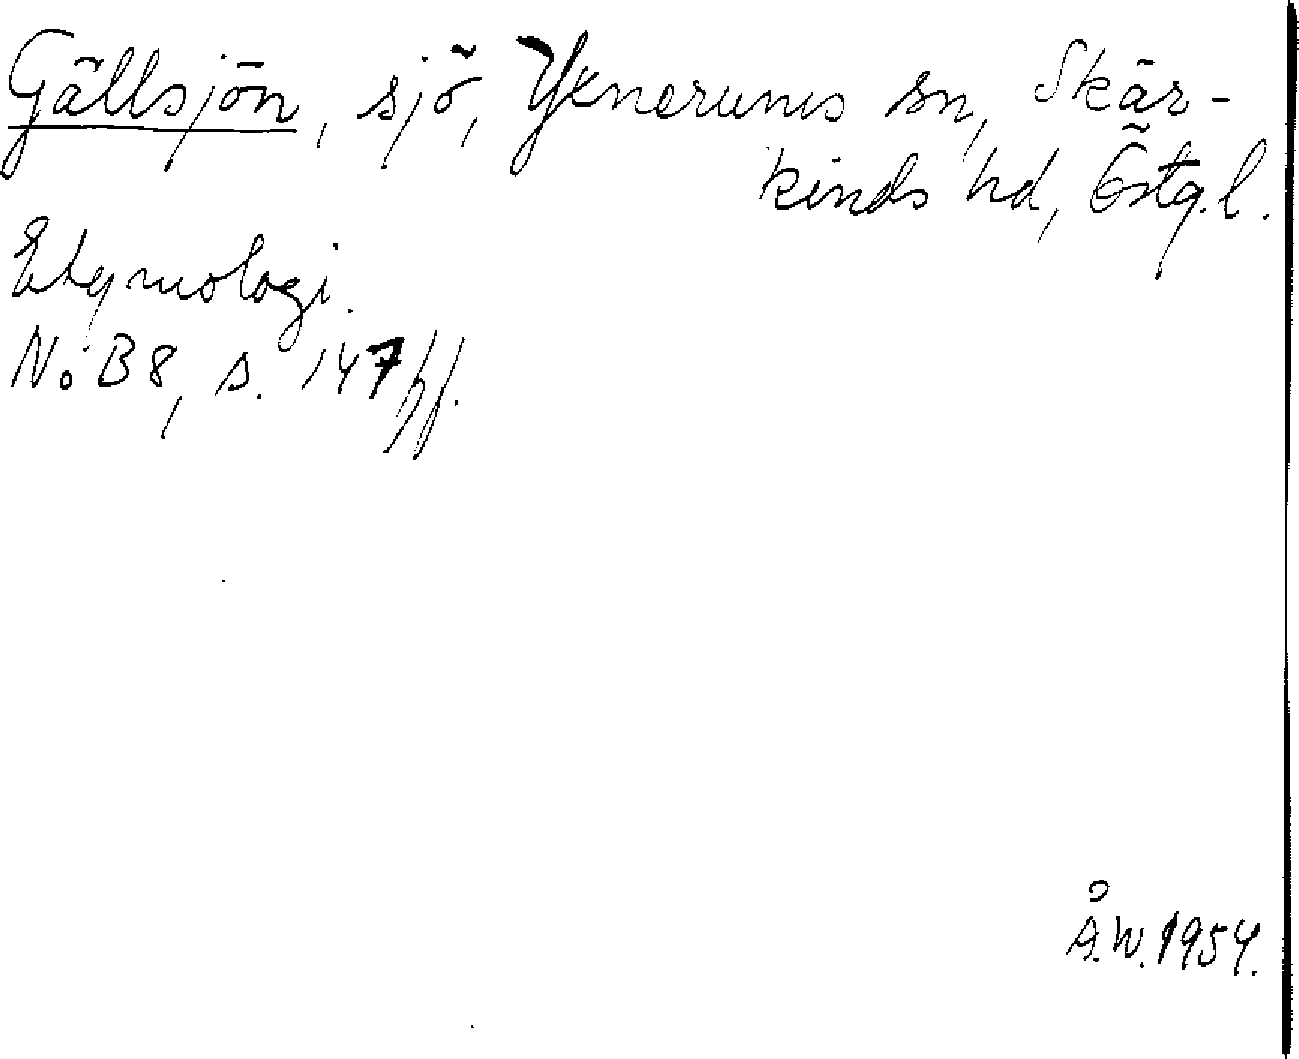 Gällsjön, sjö, Yxnerums sn, Skär-
kinds hd, Östg.l.
Etymologi.
NoB 8, s. 147 ff.
Å.W. 1954.